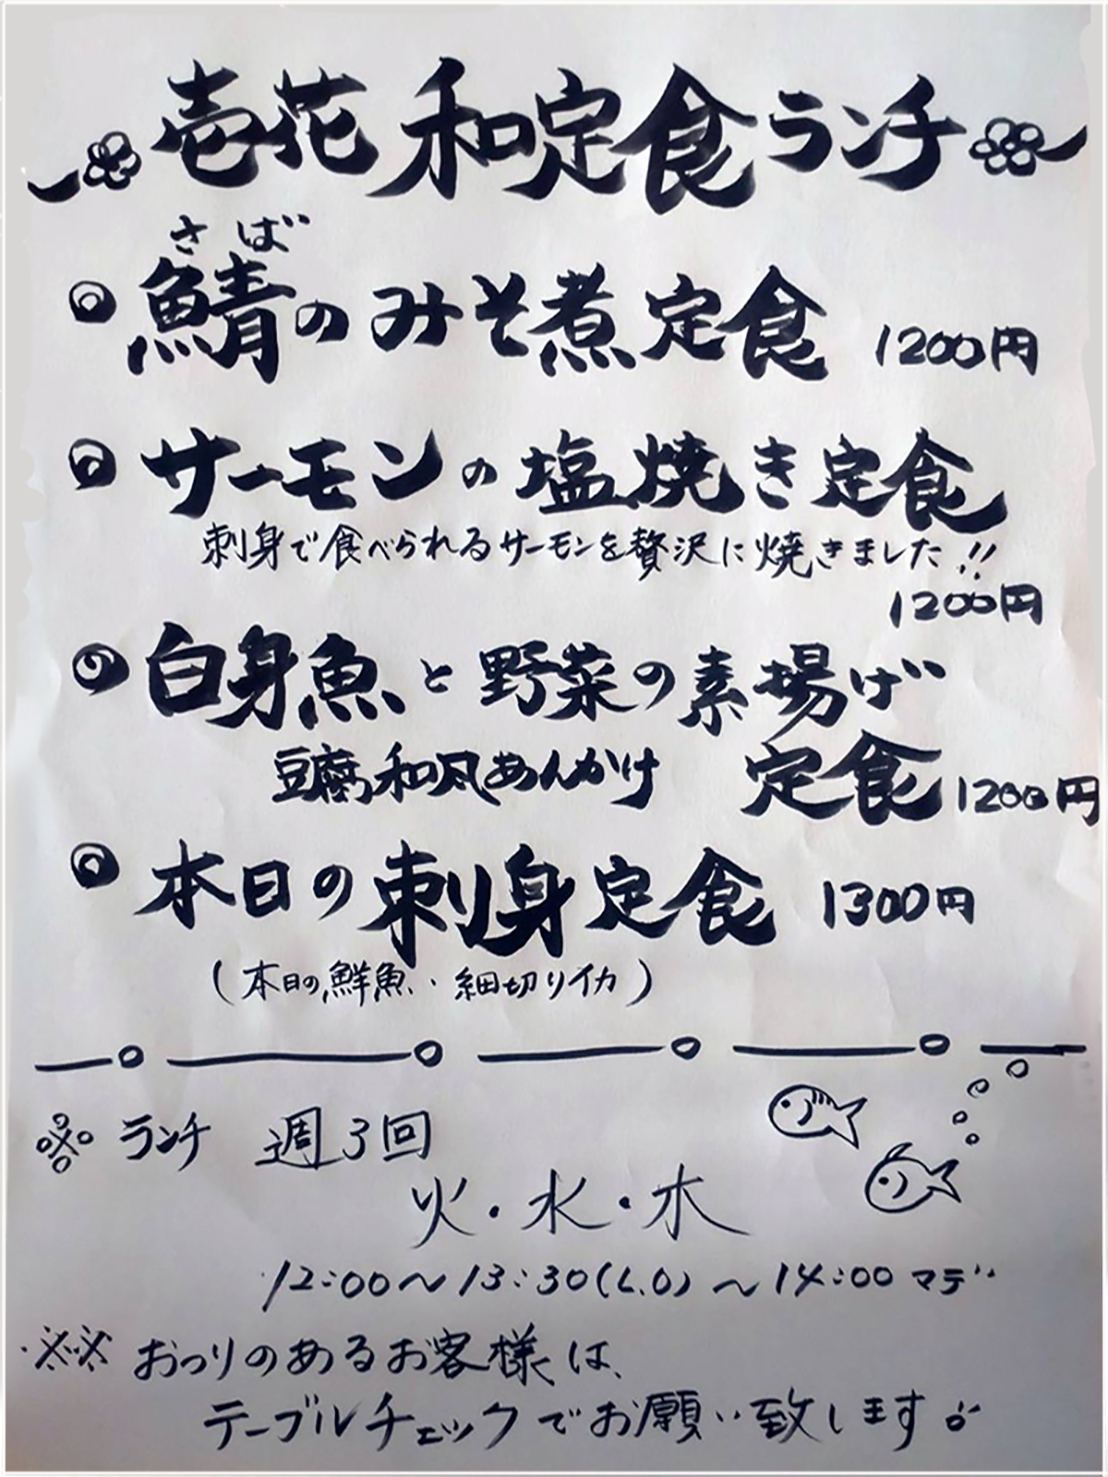 壱花 和定食ランチ
さば
鯖のみそ煮定食 1200円
サーモンの塩焼き定食
刺身で食べられるサーモンを贅沢に焼きました!!
1200円
白身魚と野菜の素揚げ
豆腐和風あんかけ 定食 1200円
本日の刺身定食 1300円
(本日の鮮魚・細切りイカ)
ランチ 週3回
火・水・木
12:00〜13:30(L.O)〜14:00マデ
※※ おつりのあるお客様は、
テーブルチェックでお願い致します。